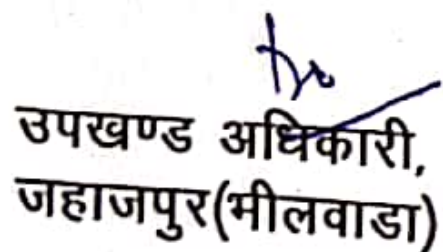 उपखण्ड अधिकारी,
जहाजपुर(भीलवाडा)